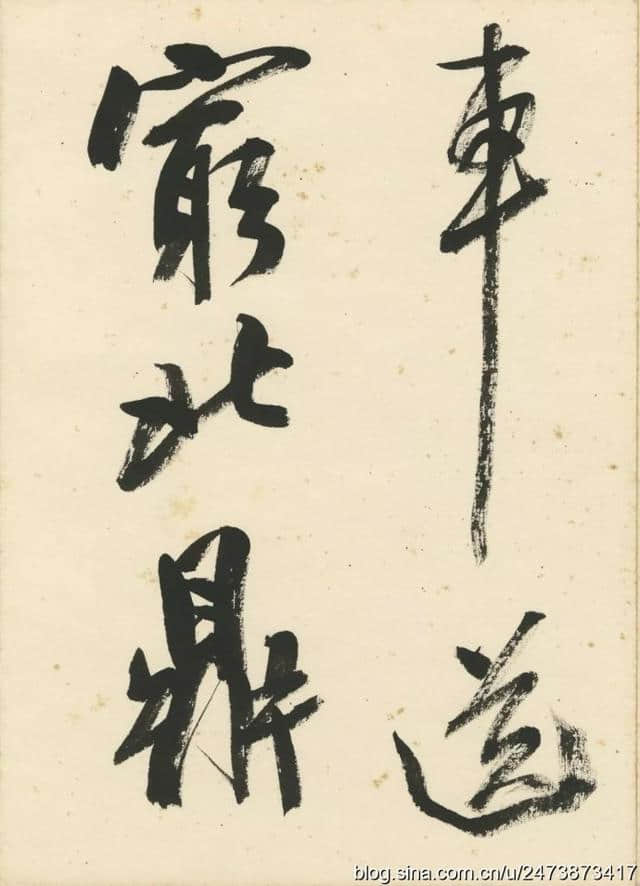 車道
窮北鼎
blog.sina.com.cn/u/2473873417